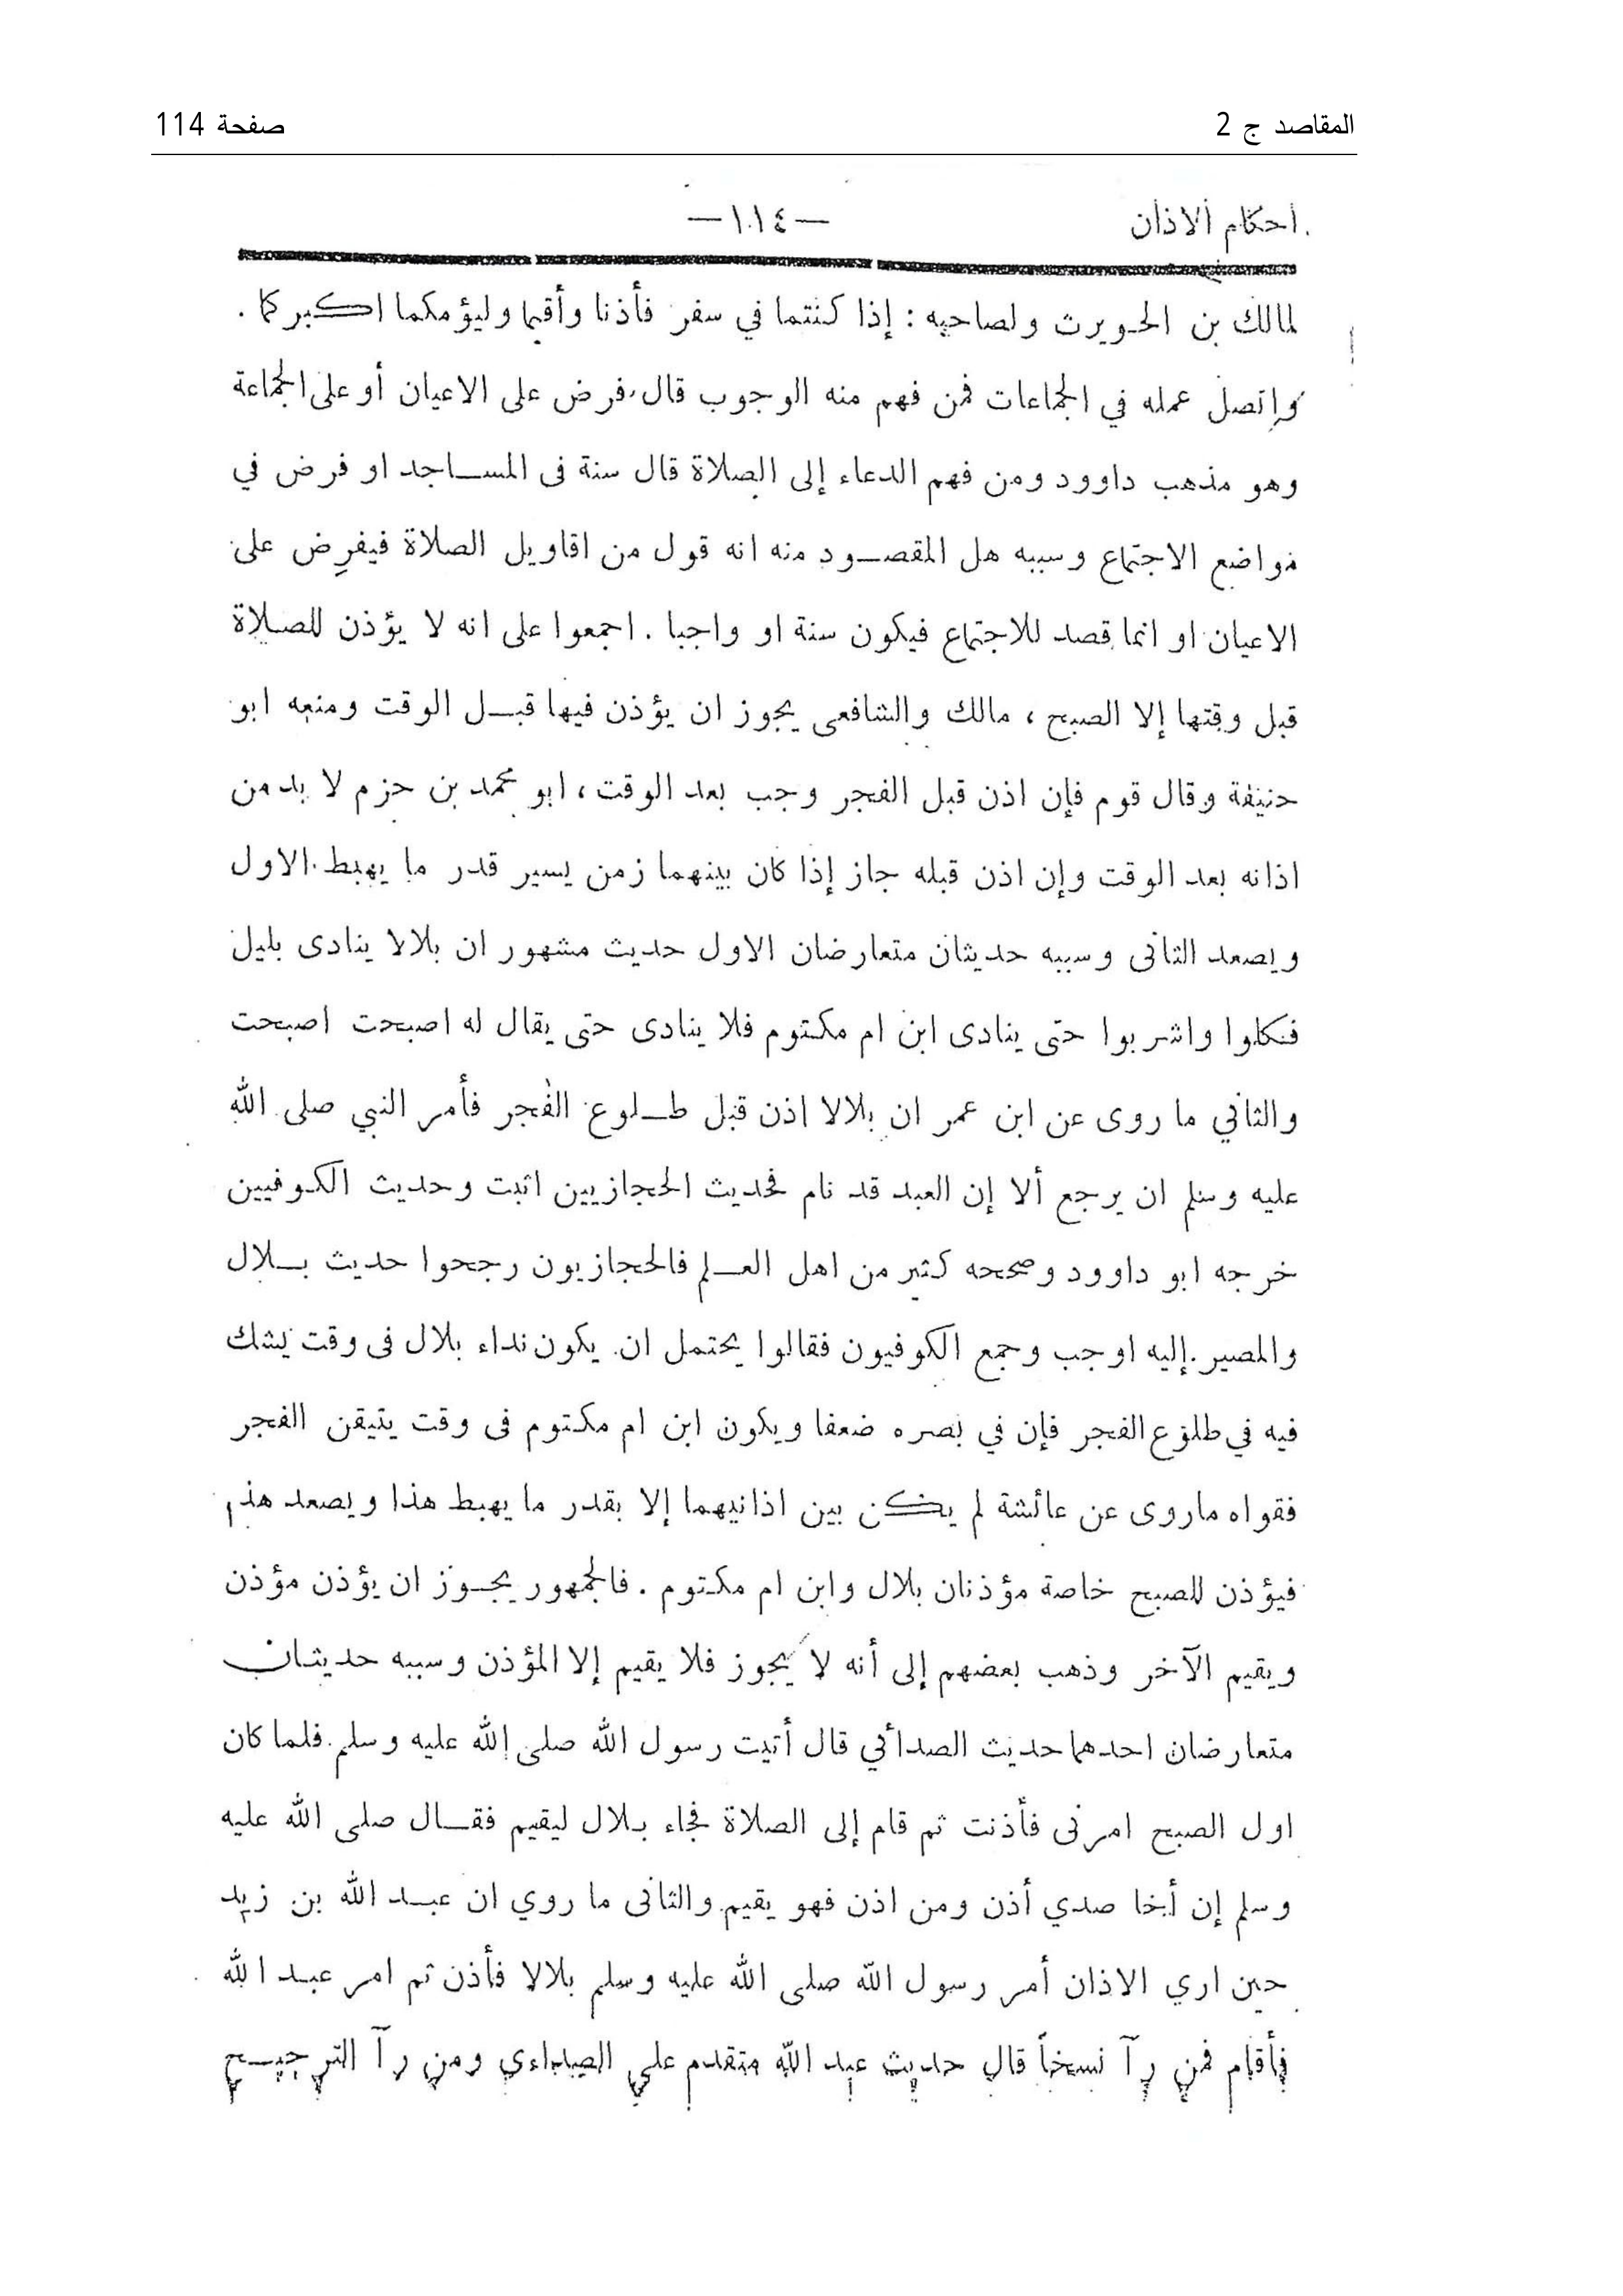 المقاصد ج 2
صفحة 114
احكام الاذان
—١١٤—
لمالك بن الحويرث ولصاحبه : إذا كنتما في سفر فأذنا وأقيما وليؤمكما اكبركما .
واتصل عمله في الجماعات فمن فهم منه الوجوب قال فرض على الاعيان أو على الجماعة
وهو مذهب داوود ومن فهم الدعاء إلى الصلاة قال سنة فى المساجد او فرض في
مواضع الاجتماع وسببه هل المقصود منه انه قول من اقاويل الصلاة فيفرض على
الاعيان او انما قصد للاجتماع فيكون سنة او واجبا . اجمعوا على انه لا يؤذن للصلاة
قبل وقتها إلا الصبح ، مالك والشافعى يجوز ان يؤذن فيها قبل الوقت ومنعه ابو
حنيفة وقال قوم فإن اذن قبل الفجر وجب بعد الوقت ، ابو محمد بن حزم لا بد من
اذانه بعد الوقت وإن اذن قبله جاز إذا كان بينهما زمن يسير قدر ما يهبط الاول
ويصعد الثانى وسببه حديثان متعارضان الاول حديث مشهور ان بلالا ينادى بليل
فكلوا واشربوا حتى ينادى ابن ام مكتوم فلا ينادى حتى يقال له اصبحت اصبحت
والثاني ما روى عن ابن عمر ان بلالا اذن قبل طلوع الفجر فأمر النبي صلى الله
عليه وسلم ان يرجع ألا إن العبد قد نام فحديث الحجازيين اثبت وحديث الكوفيين
خرجه ابو داوود وصححه كثير من اهل العلم فالحجازيون رجحوا حديث بلال
والمصير إليه اوجب وجمع الكوفيون فقالوا يحتمل ان يكون نداء بلال فى وقت يشك
فيه في طلوع الفجر فإن في بصره ضعفا ويكون ابن ام مكتوم فى وقت يتيقن الفجر
فقواه ماروى عن عائشة لم يكن بين اذانيهما إلا بقدر ما يهبط هذا ويصعد هذا
فيؤذن للصبح خاصة مؤذنان بلال وابن ام مكتوم . فالجمهور يجوز ان يؤذن مؤذن
ويقيم الآخر وذهب بعضهم إلى أنه لا يجوز فلا يقيم إلا المؤذن وسببه حديثان
متعارضان احدهما حديث الصدائي قال أتيت رسول الله صلى الله عليه وسلم فلما كان
اول الصبح امرنى فأذنت ثم قام إلى الصلاة فجاء بلال ليقيم فقال صلى الله عليه
وسلم إن أخا صدي أذن ومن اذن فهو يقيم والثانى ما روي ان عبد الله بن زيد
حين اري الاذان أمر رسول الله صلى الله عليه وسلم بلالا فأذن ثم امر عبد الله
فأقام فمن رآ نسخاً قال حديث عبد الله متقدم على الصداءي ومن رآ الترجيح